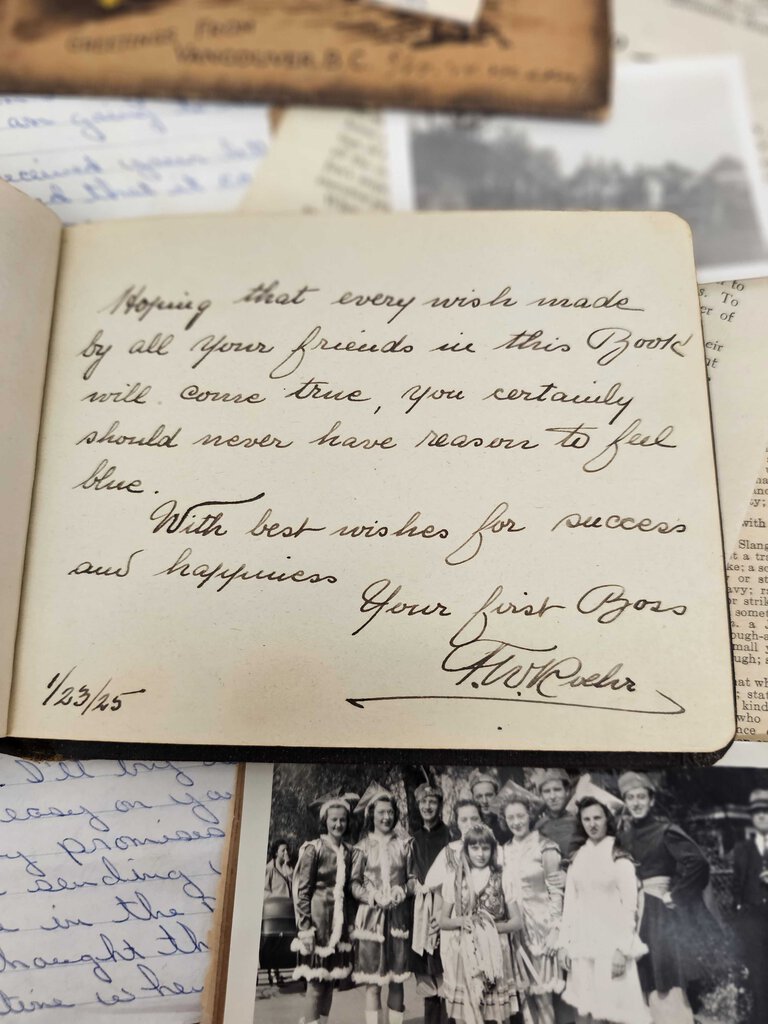 GREETINGS FROM
VANCOUVER, B.C.
am going to
received your
Hoping that every wish made
by all your friends in this Book
will come true, you certainly
should never have reason to feel
blue.
With best wishes for success
and happiness
Your first Boss
F.W. Roehr
1/23/25
to
s. To
er of
eir
at
with
Slang
t a tra
ke; a
or st
avy;
or strik
somet
a J
ough-a
mall
ugh;
at wh
; stat
kind
who
ance
I'll try
easy on you
my promises
sending
in the
thought th
time whe